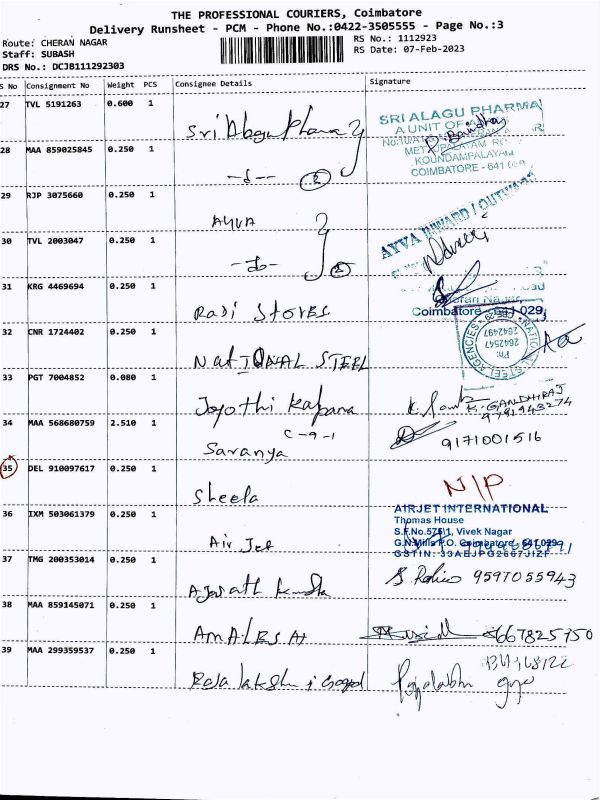 THE PROFESSIONAL COURIERS, Coimbatore
Delivery Runsheet - PCM - Phone No.:0422-3505555 - Page No.:3
Route: CHERAN NAGAR
RS No.: 1112923
Staff: SUBASH
RS Date: 07-Feb-2023
DRS No.: DCJB111292303
S No Consignment No Weight PCS Consignee Details Signature
27 TVL 5191263 0.600 1 Sri Alagu Pharma
SRI ALAGU PHARMA
A UNIT OF
METTUPALAYAM
KOUNDAMPALAYAM
COIMBATORE - 641
28 MAA 859025845 0.250 1 2
29 RJP 3075660 0.250 1 AYVA
AYVA INWARD / OUTWARD
30 TVL 2003047 0.250 1 2
31 KRG 4469694 0.250 1 Rasi Stores
Coimbatore - 641 029
32 CNR 1724402 0.250 1 NATIONAL STEEL
NATIONAL STEEL AGENCIES
Ph: 2642547
2642497
33 PGT 7004852 0.080 1 Joyothi Kalpana
K. GANDHIRAJ
9791943274
34 MAA 568680759 2.510 1 C-9-1
Saranya
9171001516
35 DEL 910097617 0.250 1 Sheela N/P
36 IXM 503061379 0.250 1 Air Jet
AIRJET INTERNATIONAL
Thomas House
S.F.No.575\1, Vivek Nagar
G.N.Mills P.O. Coimbatore - 641 029
GSTIN: 33AEJPG2667J1ZF
37 TMG 200353014 0.250 1 9597055943
38 MAA 859145071 0.250 1 6667825750
39 MAA 299359537 0.250 1